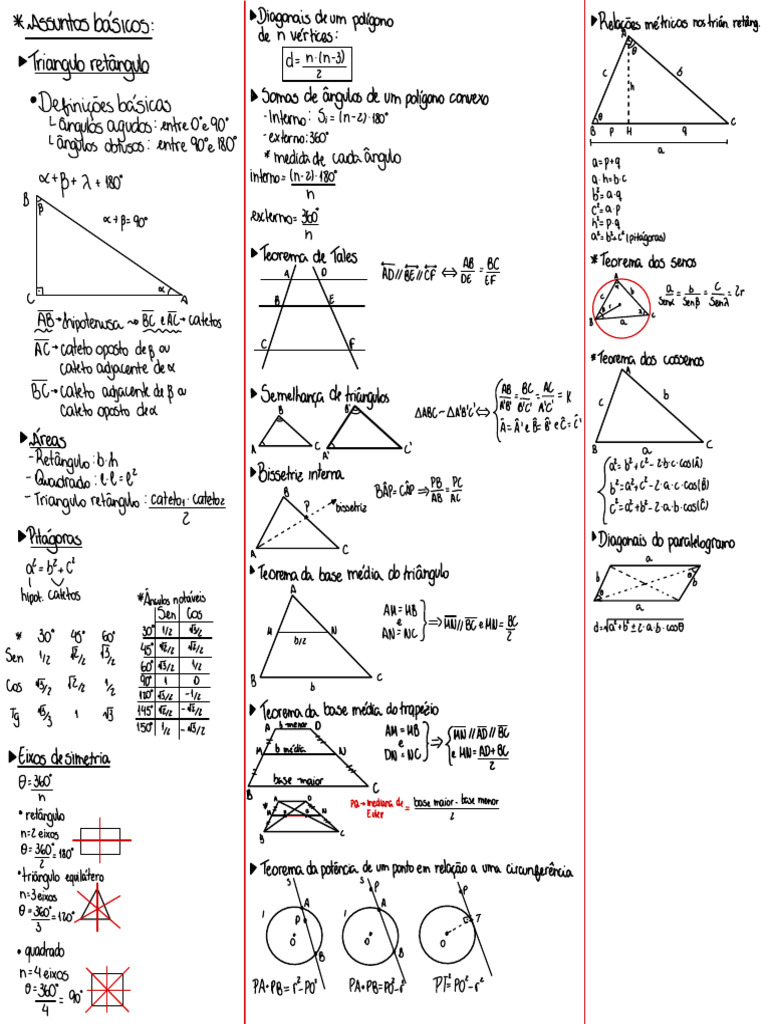 * Assuntos básicos:
▶ Triangulo retângulo
• Definições básicas
└ ângulos agudos: entre 0° e 90°
└ ângulos obtusos: entre 90° e 180°
α+β+λ+180°
B
β
α+β=90°
C
α
A
AB→hipotenusa ⇝ BC e AC→catetos
AC→cateto oposto de β ou
cateto adjacente de α
BC→cateto adjacente de β ou
cateto oposto de α
▶ Áreas
- Retângulo: b·h
- Quadrado: l·l=l²
- Triangulo retângulo: cateto1·cateto2/2
▶ Pitágoras
a²=b²+c²
hipot. catetos
* 30° 45° 60°
Sen 1/2 √2/2 √3/2
Cos √3/2 √2/2 1/2
Tg √3/3 1 √3
* Ângulos notáveis
Sen Cos
30° 1/2 √3/2
45° √2/2 √2/2
60° √3/2 1/2
90° 1 0
120° √3/2 -1/2
145° √2/2 -√2/2
150° 1/2 -√3/2
▶ Eixos de simetria
θ=360°/n
• retângulo
n=2 eixos
θ=360°/2=180°
• triângulo equilátero
n=3 eixos
θ=360°/3=120°
• quadrado
n=4 eixos
θ=360°/4=90°
▶ Diagonais de um polígono
de n vértices:
d=n·(n-3)/2
▶ Somas de ângulos de um polígono convexo
- Interno: Si=(n-2)·180°
- externo: 360°
* medida de cada ângulo
interno=(n-2)·180°/n
externo=360°/n
▶ Teorema de Tales
A D
B E
C F
AD//BE//CF ⇔ AB/DE=BC/EF
▶ Semelhança de triângulos
B B'
A C A' C'
ΔABC~ΔA'B'C' ⇔ { AB/A'B'=BC/B'C'=AC/A'C'=K
Â=Â' e B̂=B̂' e Ĉ=Ĉ'
▶ Bissetriz interna
B
P
bissetriz
A C
BÂP=CÂP ⇒ PB/AB=PC/AC
▶ Teorema da base média do triângulo
A
M N
b/2
B C
b
AM=MB
e
AN=NC
⇒ MN//BC e MN=BC/2
▶ Teorema da base média do trapézio
A b menor D
M b média N
base maior
B C
AM=MB
e
DN=NC
⇒ { MN//AD//BC
e MN=AD+BC/2
*
A D
M P Q N
B C
PQ→mediana de
Euler = base maior-base menor/2
▶ Teorema da potência de um ponto em relação a uma circunferência
s
A
P
O
B
s
P
A
O
B
P
T
O
PA·PB=r²-PO²
PA·PB=PO²-r²
PT²=PO²-r²
▶ Relações métricas nos trián. retâng.
A
θ
c
h
b
θ
B P H q C
a
a=p+q
a·h=b·c
b²=a·q
c²=a·p
h²=p·q
a²=b²+c² (pitágoras)
* Teorema dos senos
A
c b
r
B a C
a/senα=b/senβ=c/senλ=2r
* Teorema dos cossenos
A
c b
B a C
a²=b²+c²-2·b·c·cos(Â)
b²=a²+c²-2·a·c·cos(B̂)
c²=a²+b²-2·a·b·cos(Ĉ)
▶ Diagonais do paralelogramo
a
b θ θ b
a
d=√a²+b²±2·a·b·cosθ